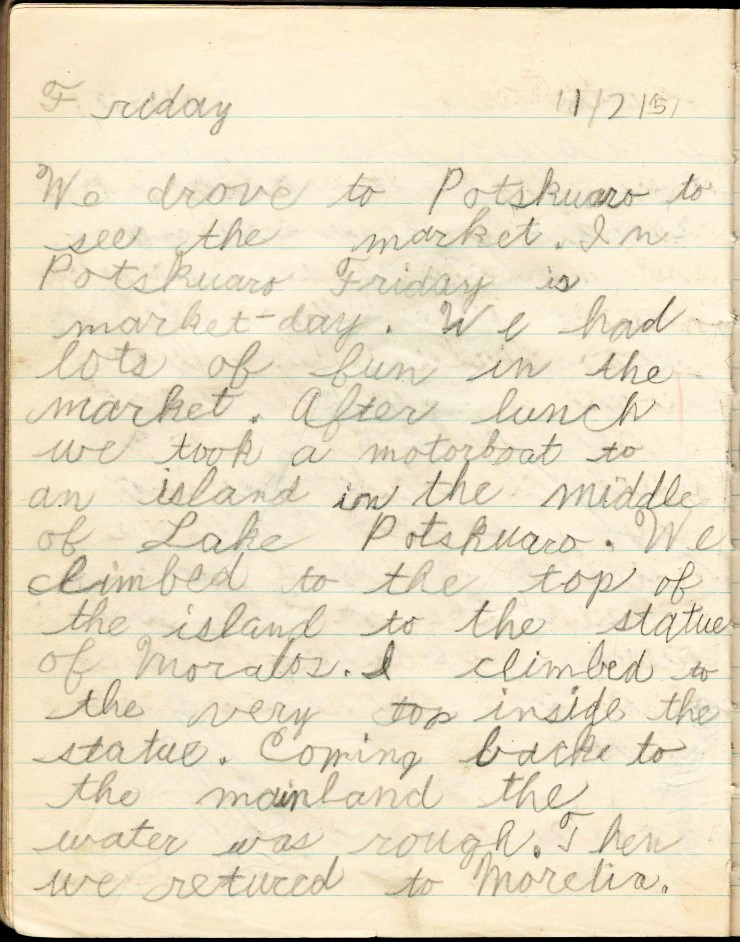 Friday 11/2/51
We drove to Potskuaro to
see the market. In
Potskuaro Friday is
market-day. We had
lots of fun in the
market. After lunch
we took a motorboat to
an island in the middle
of Lake Potskuaro. We
climbed to the top of
the island to the statue
of Moralos. I climbed to
the very top inside the
statue. Coming back to
the mainland the
water was rough. Then
we retured to Morelia.